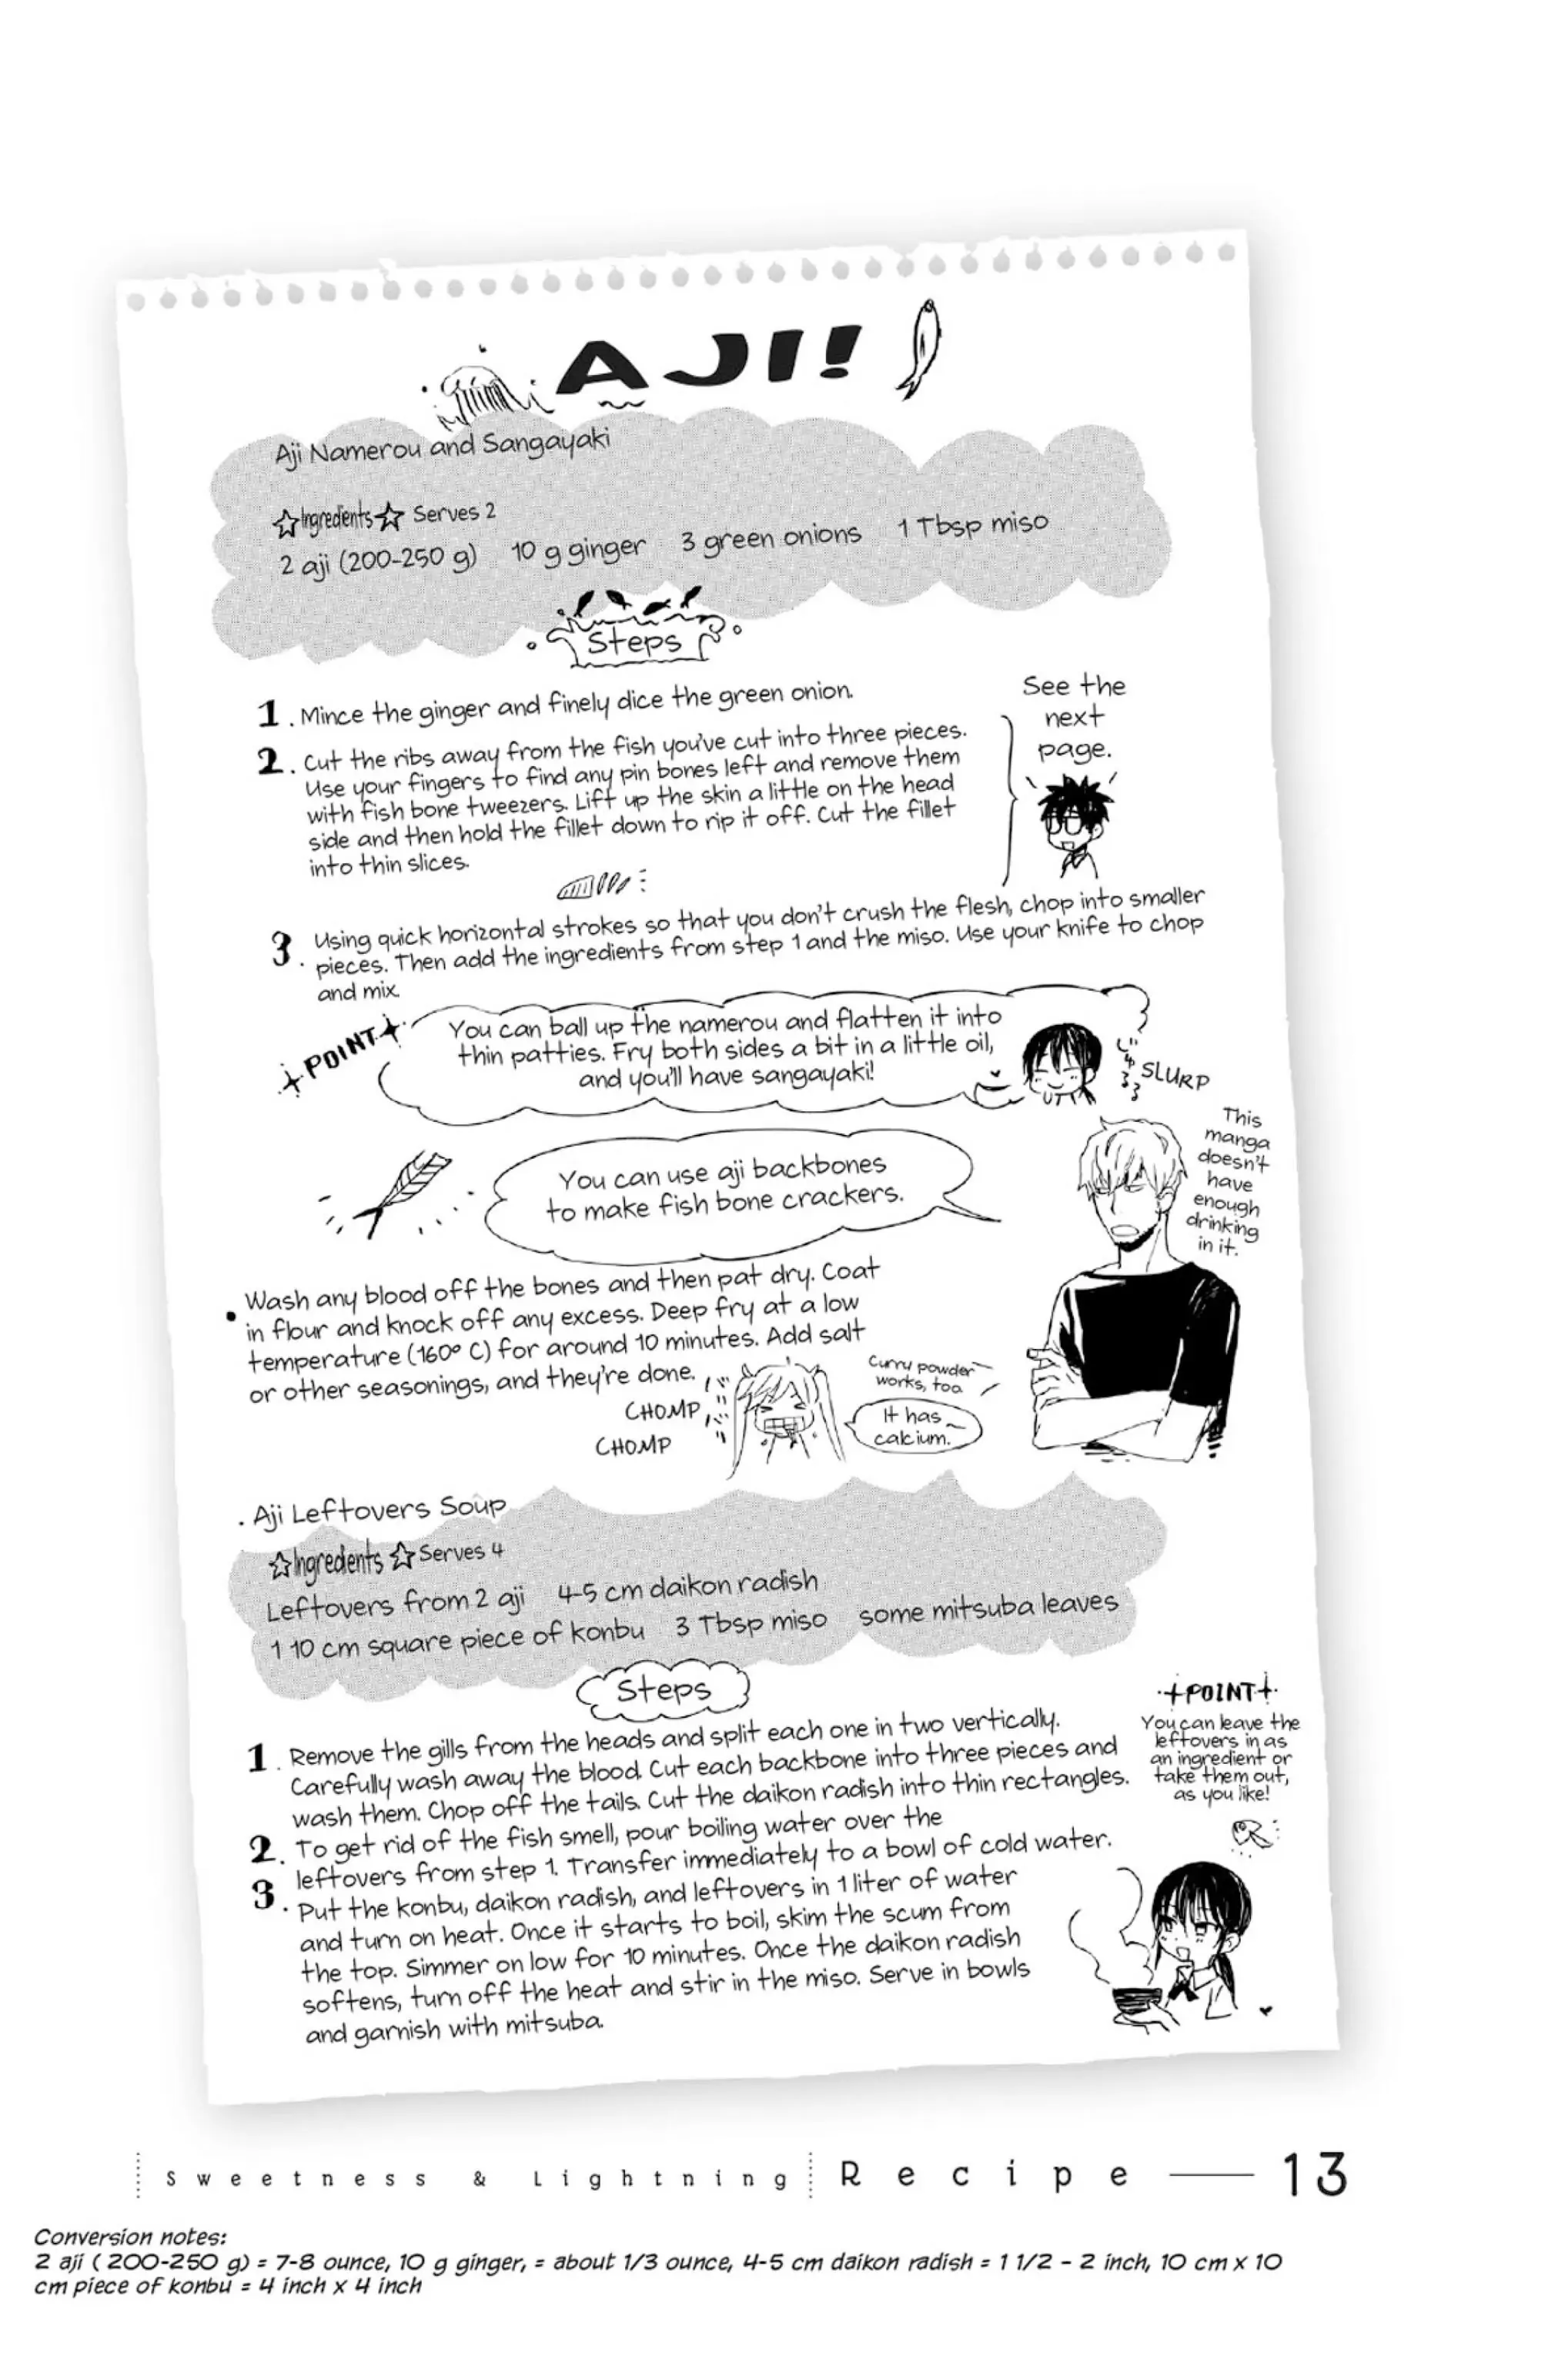 AJI!
Aji Namerou and Sangayaki
☆Ingredients☆ Serves 2
2 aji (200-250 g) 10 g ginger 3 green onions 1 Tbsp miso
Steps
1. Mince the ginger and finely dice the green onion.
2. Cut the ribs away from the fish you've cut into three pieces.
Use your fingers to find any pin bones left and remove them
with fish bone tweezers. Lift up the skin a little on the head
side and then hold the fillet down to rip it off. Cut the fillet
into thin slices.
See the
next
page.
3. Using quick horizontal strokes so that you don't crush the flesh, chop into smaller
pieces. Then add the ingredients from step 1 and the miso. Use your knife to chop
and mix.
POINT
You can ball up the namerou and flatten it into
thin patties. Fry both sides a bit in a little oil,
and you'll have sangayaki!
SLURP
This
manga
doesn't
have
enough
drinking
in it.
You can use aji backbones
to make fish bone crackers.
• Wash any blood off the bones and then pat dry. Coat
in flour and knock off any excess. Deep fry at a low
temperature (160° C) for around 10 minutes. Add salt
or other seasonings, and they're done.
CHOMP
CHOMP
Curry powder
works, too.
It has
calcium.
. Aji Leftovers Soup
☆Ingredients☆ Serves 4
Leftovers from 2 aji 4-5 cm daikon radish
1 10 cm square piece of konbu 3 Tbsp miso some mitsuba leaves
Steps
1. Remove the gills from the heads and split each one in two vertically.
Carefully wash away the blood. Cut each backbone into three pieces and
wash them. Chop off the tails. Cut the daikon radish into thin rectangles.
2. To get rid of the fish smell, pour boiling water over the
leftovers from step 1. Transfer immediately to a bowl of cold water.
3. Put the konbu, daikon radish, and leftovers in 1 liter of water
and turn on heat. Once it starts to boil, skim the scum from
the top. Simmer on low for 10 minutes. Once the daikon radish
softens, turn off the heat and stir in the miso. Serve in bowls
and garnish with mitsuba.
POINT
You can leave the
leftovers in as
an ingredient or
take them out,
as you like!
Sweetness & Lightning Recipe — 13
Conversion notes:
2 aji ( 200-250 g) = 7-8 ounce, 10 g ginger, = about 1/3 ounce, 4-5 cm daikon radish = 1 1/2 - 2 inch, 10 cm x 10
cm piece of konbu = 4 inch x 4 inch